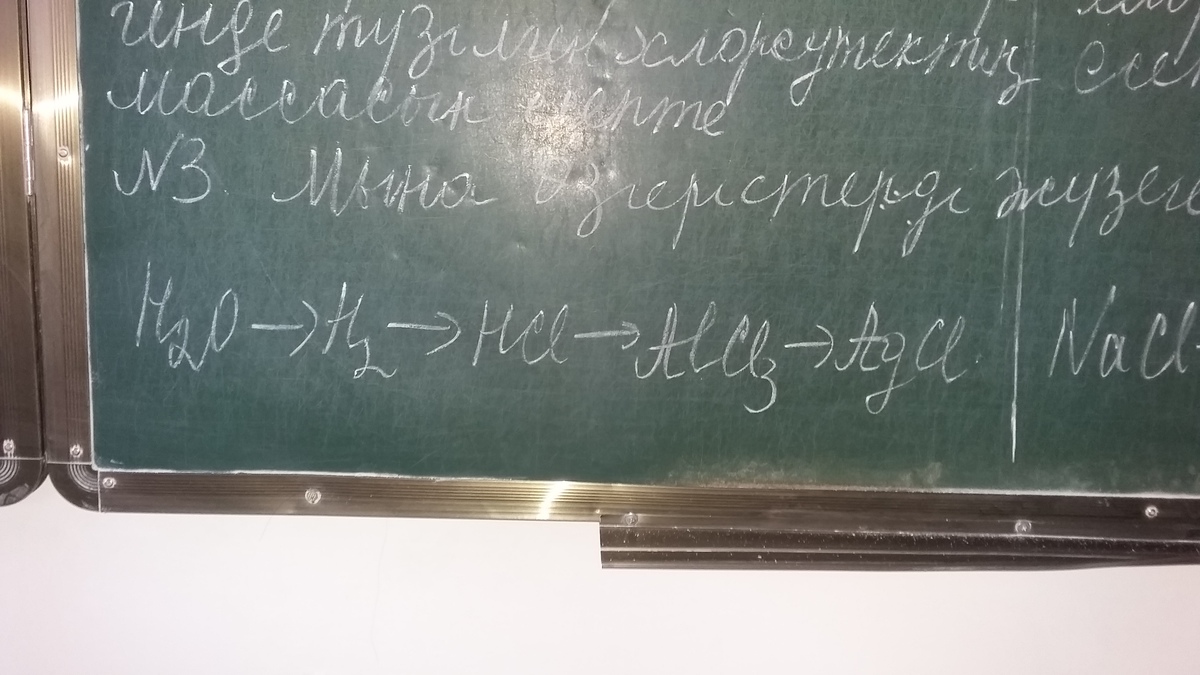 інде түзілген хлорсутектің
массасын есепте
Есеп
N3 Мына өзгерістерді жүзеге
H₂O → H₂ → HCl → AlCl₃ → AgCl
NaCl